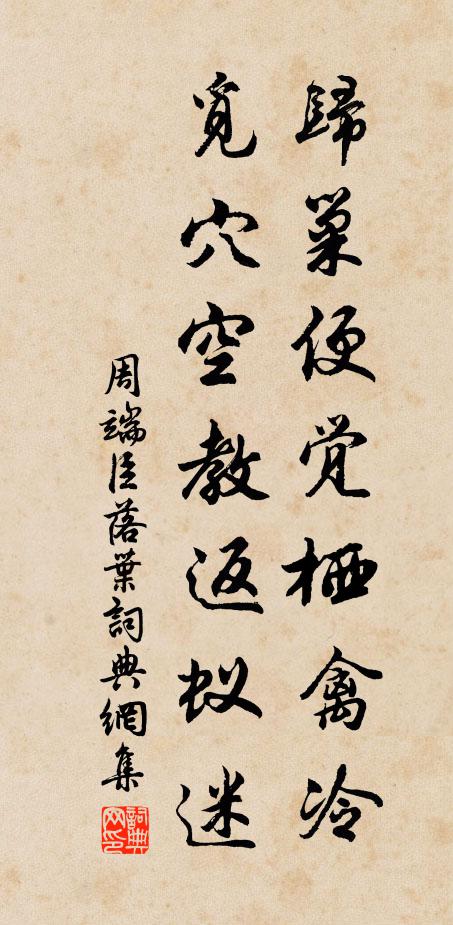 歸巢便覺栖禽冷
覓穴空教返蚁迷
周端臣落葉詞典網集
詞典网印